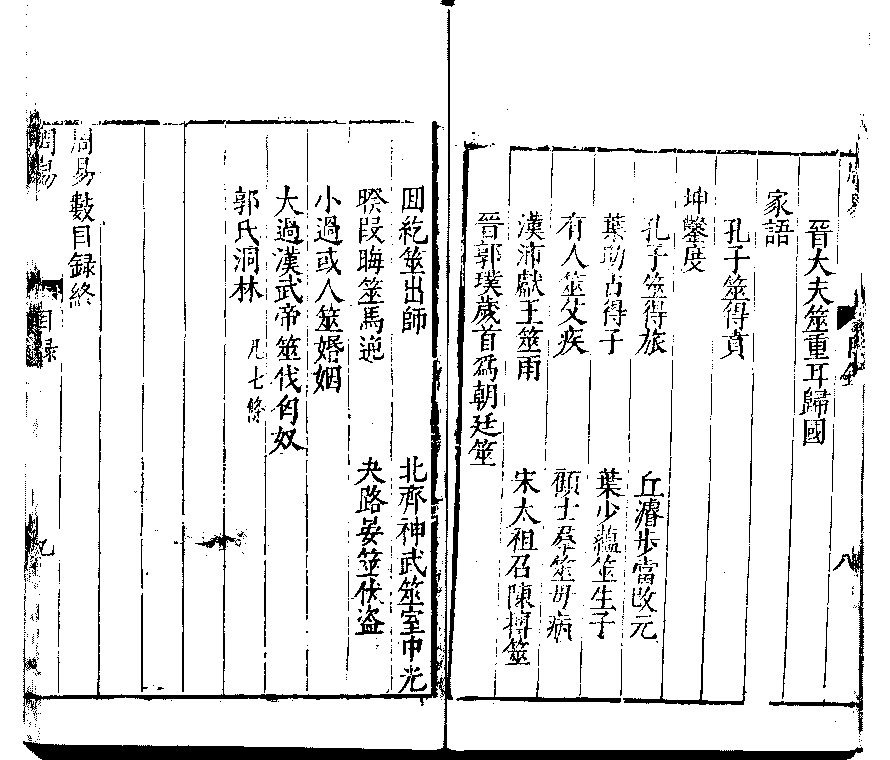 晉大夫筮重耳歸國
家語
孔子筮得賁
坤鑿度
孔子筮得旅　丘濬步當改元
葉助占得子　葉少蘊筮生子
有人筮父疾　顧士群筮母病
漢沛獻王筮雨　宋太祖召陳摶筮
晉郭璞歲首爲朝廷筮
八
回紇筮出師　北齊神武筮室中光
暌叚晦筮馬逸　夬路晏筮伏盜
小過或人筮婚姻
大過漢武帝筮伐匈奴
郭氏洞林　凡七條
周易數目録終
周易　目録　九